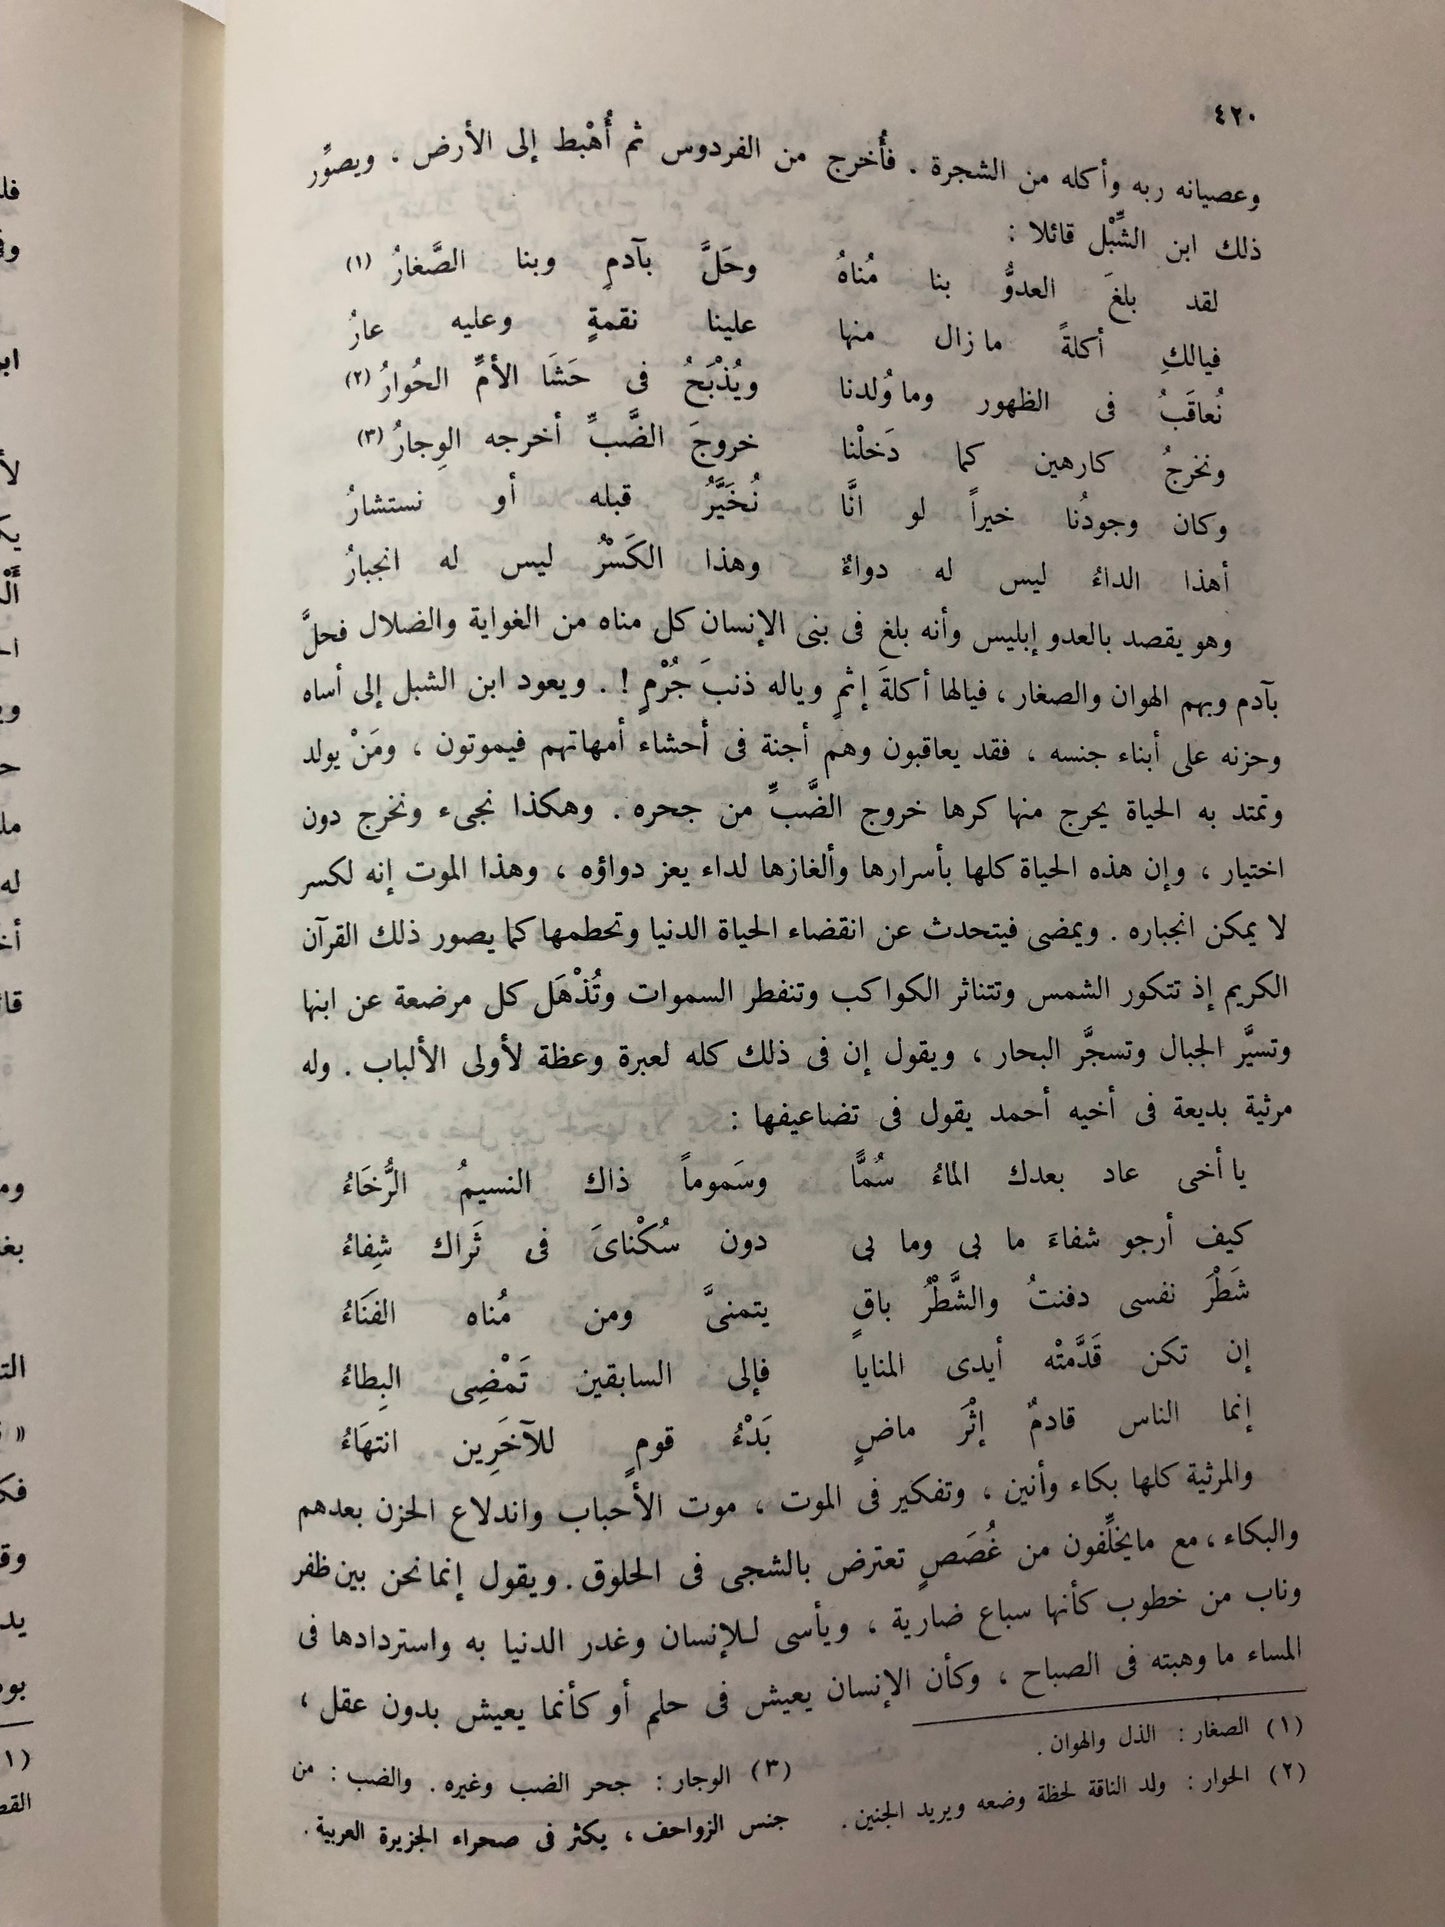 ٤٢٠
وعصيانه ربه وأكله من الشجرة . فأُخرج من الفردوس ثم أُهْبط إلى الأرض ، ويصوِّر
ذلك ابن الشِّبْل قائلا :
لقد بلغَ العدوُّ بنا مُناهُ وحَلَّ بآدمٍ وبنا الصَّغارُ (١)
فيالكِ أكلةً مازال منها علينا نقمةٍ وعليه عارُ
نُعاقَبُ فى الظهور وما وُلدنا ويُذْبَحُ فى حَشَا الأمِّ الحُوارُ (٢)
ونخرجُ كارهين كما دَخلْنا خروجَ الضَّبِّ أخرجه الوِجارُ (٣)
وكان وجودُنُا خيراً لو انَّا نُخَيَّرُ قبله أو نستشارُ
أهذا الداءُ ليس له دواءٌ وهذا الكَسْرُ ليس له انجبارُ
وهو يقصد بالعدو إبليس وأنه بلغ فى بنى الإنسان كل مناه من الغواية والضلال فحلَّ
بآدم وبهم الهوان والصغار ، فيالها أكلةَ إثمٍ وياله ذنبَ جُرْمٍ ! . ويعود ابن الشبل إلى أساه
وحزنه على أبناء جنسه ، فقد يعاقبون وهم أجنة فى أحشاء أمهاتهم فيموتون ، ومَنْ يولد
وتمتد به الحياة يخرج منها كرها خروج الضَّبِّ من جحره . وهكذا نجىء ونخرج دون
اختيار ، وإن هذه الحياة كلها بأسرارها وألغازها لداء يعز دواؤه ، وهذا الموت إنه لكسر
لا يمكن انجباره . ويمضى فيتحدث عن انقضاء الحياة الدنيا وتحطمها كما يصور ذلك القرآن
الكريم إذ تتكور الشمس وتتناثر الكواكب وتنفطر السموات وتُذْهَل كل مرضعة عن ابنها
وتسيَّر الجبال وتسجَّر البحار ، ويقول إن فى ذلك كله لعبرة وعظة لأولى الألباب . وله
مرثية بديعة فى أخيه أحمد يقول فى تضاعيفها :
يا أخى عاد بعدك الماءُ سُمًّا وسَموماً ذاك النسيمُ الرُّخَاءُ
كيف أرجو شفاءَ ما بى وما بى دون سُكْناىَ فى ثَراك شِفاءُ
شَطْرَ نفسى دفنتُ والشَّطْرُ باقٍ يتمنىَّ ومن مُناه الفَنَاءُ
إن تكن قَدَّمتْه أيدى المنايا فإلى السابقين تَمْضِى البِطاءُ
إنما الناس قادمٌ إثْرَ ماضٍ بَدْءُ قومٍ للآخَرِين انتهَاءُ
والمرثية كلها بكاء وأنين ، وتفكير فى الموت ، موت الأحباب واندلاع الحزن بعدهم
والبكاء ، مع مايخلِّفون من غُصَصٍ تعترض بالشجى فى الحلوق . ويقول إنما نحن بين ظفر
وناب من خطوب كأنها سباع ضارية ، ويأسى للإنسان وغدر الدنيا به واستردادها فى
المساء ما وهبته فى الصباح ، وكأن الإنسان يعيش فى حلم أو كأنما يعيش بدون عقل ،
(١) الصغار : الذل والهوان .
(٢) الحوار : ولد الناقة لحظة وضعه ويريد الجنين .
(٣) الوجار : جحر الضب وغيره . والضب : من
جنس الزواحف ، يكثر فى صحراء الجزيرة العربية .